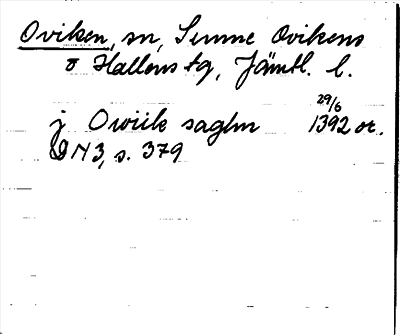 Oviken, sn, Sunne Ovikens
o Hallens tg, Jämtl. l.
j Owiik saghn 29/6 1392 or.
DN 3, s. 379